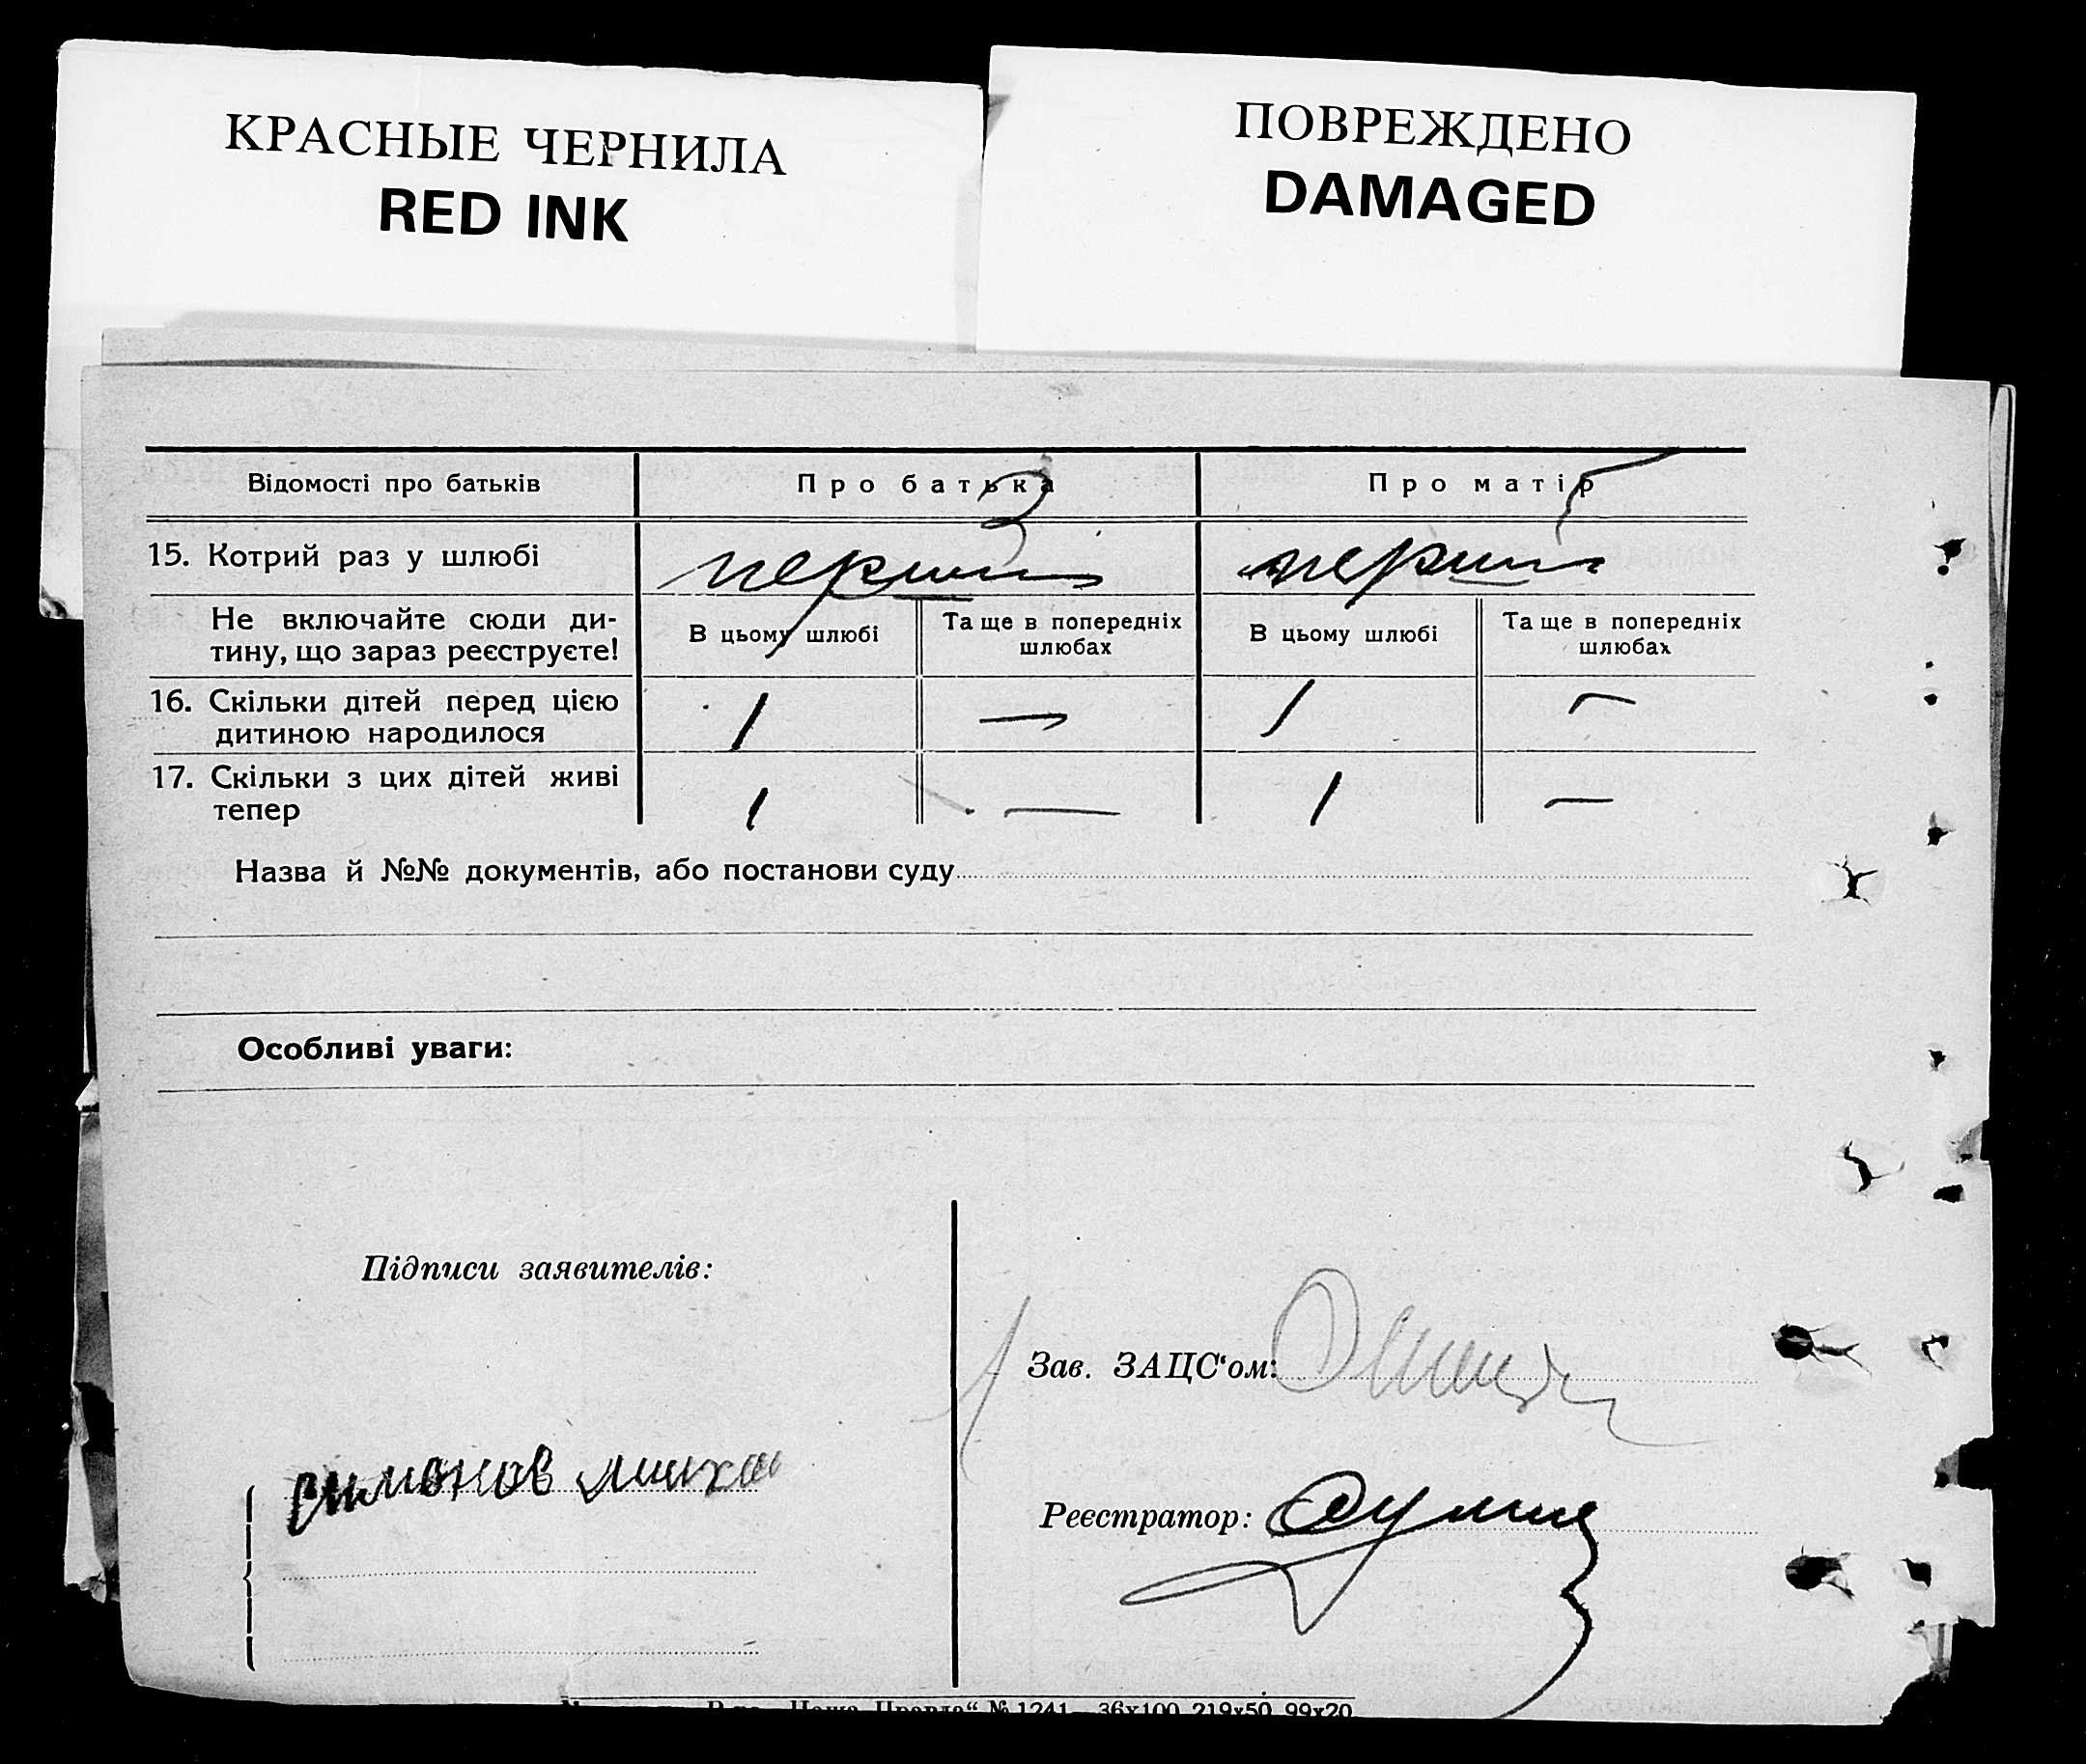 КРАСНЫЕ ЧЕРНИЛА
RED INK
ПОВРЕЖДЕНО
DAMAGED
Відомості про батьків
Про батька
Про матір
15. Котрий раз у шлюбі
перший
перший
Не включайте сюди ди-
тину, що зараз реєструєте!
В цьому шлюбі
Та ще в попередніх
шлюбах
В цьому шлюбі
Та ще в попередніх
шлюбах
16. Скільки дітей перед цією
дитиною народилося
1
—
1
—
17. Скільки з цих дітей живі
тепер
1
—
1
—
Назва й №№ документів, або постанови суду
Особливі уваги:
Підписи заявителів:
Зав. ЗАЦС‘ом:
симонов миха
Реєстратор:
Наша Правда“ № 1241 36х100 219х50 99х20